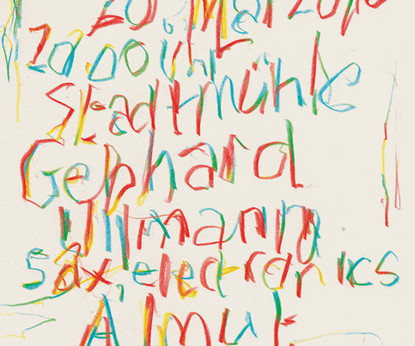 20. Mai 2010
20.00 Uhr
Stadtmühle
Gebhard
Ullmann
sax, electronics
Almut